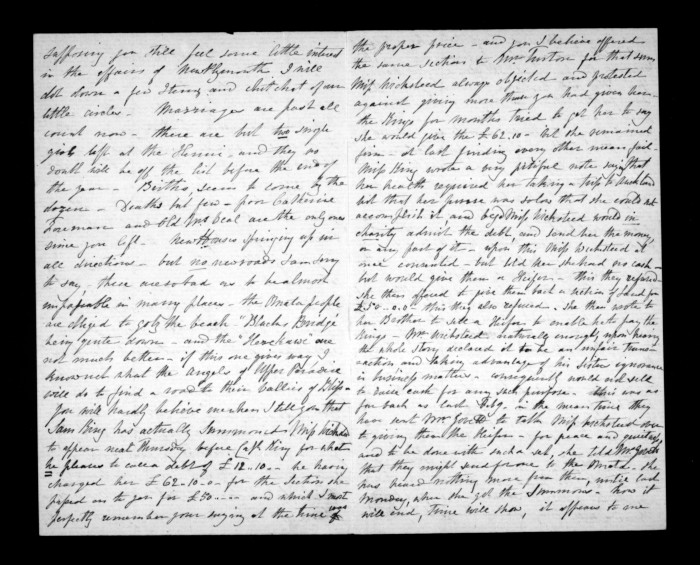 supposing you still feel some little interest
in the affairs of New Plymouth I will
dot down a few Items and chit chat of our
little circles. Marriages are past all
count now - there are but two single
girls left at the Henui - and they no
doubt will be off the list before the end of
the year - Births, seem to come by the
dozen - Deaths but few - poor Catherine
and Old Mrs Veal are the only ones
since you left - New Houses springing up in
all directions - but no new roads I am sorry
to say, these are so bad as to be almost
impassable in many places - the Omata people
are obliged to go to the beach "Blacks Bridge
being quite down - and the Herekawe are
not much better - if this one gives way I
know not what the angels of Upper Paradise
will do to find a road to their Vallies of Bliss -
You will hardly believe me when I tell you that
Sam King has actually Summoned Miss Wicksteed
to appear next Thursday before Capt King for what
he pleases to call a debt of £12.10 - he having
charged her £62-10-0 for the Section she
passed on to you for £50 - and which I most
perfectly remember your saying at the time was
the proper price - and you I believe offered
the same Sections to Mrs Turton for that sum
Miss Wicksteed always objected and protested
against giving more than you had given her -
the Kings for months tried to get her to say
she would give the £62.10 - but she remained
firm - at last finding every other means fail -
Miss King wrote a very pitiful note saying that
her health required her taking a trip to Auckland
but that her purse was so low that she could not
accomplish it, and begd Miss Wicksteed would in
charity admit the debt and send her the money,
or any part of it - upon this Miss Wicksteed at
once consented - but told her she had no cash -
but would give them a Heifer - this they refused -
she then offered to give them back a section of land for
£50-0-0 this they also refused. She then wrote to
her Brother to sell a Heifer to enable her to pay the
Kings - Mr Wicksteed naturally enough, upon hearing
the whole story declared it to be an unfair trans-
action and taking advantage of his Sisters ignorance
in business matters - consequently would not sell
to raise cash for any such purpose - this was as
far back as last Feby - in the mean time they
have sent Mr to talk Miss Wicksteed over
to giving them the Heifer - for peace and quietness
and to be done with such a set, she told Mr
that they might send for one to the Omata - she
has heard nothing more from them, until last
Monday, when she got the Summons - how it
will end, time will show, it appears to me